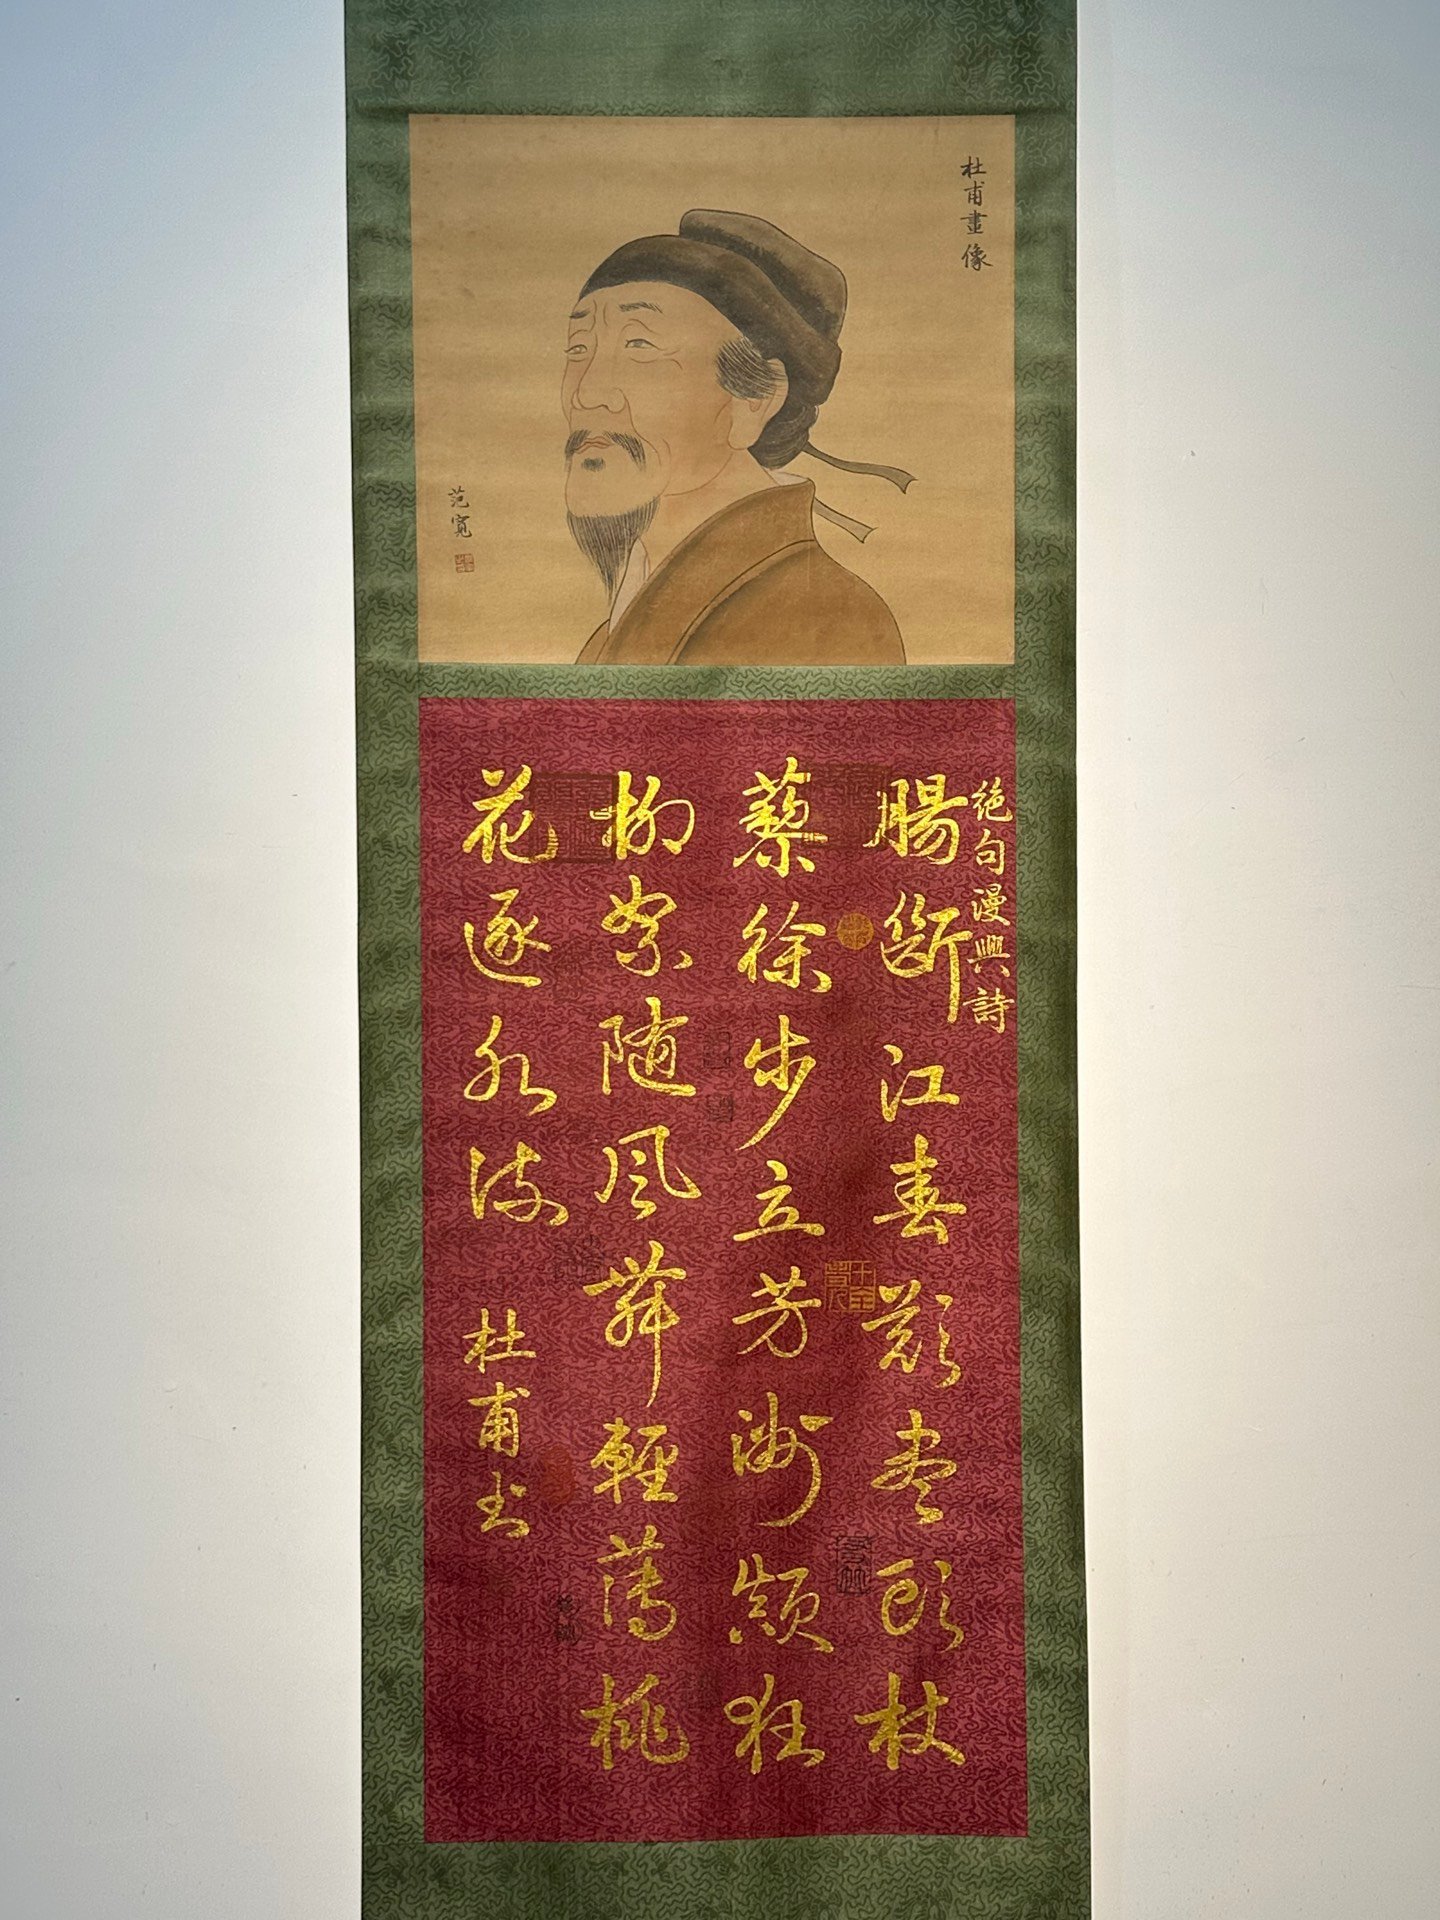 杜甫畫像
范寬
絶句漫興詩
腸斷江春欲盡頭杖
藜徐步立芳洲顛狂
柳絮隨風舞輕薄桃
花逐水流
杜甫书